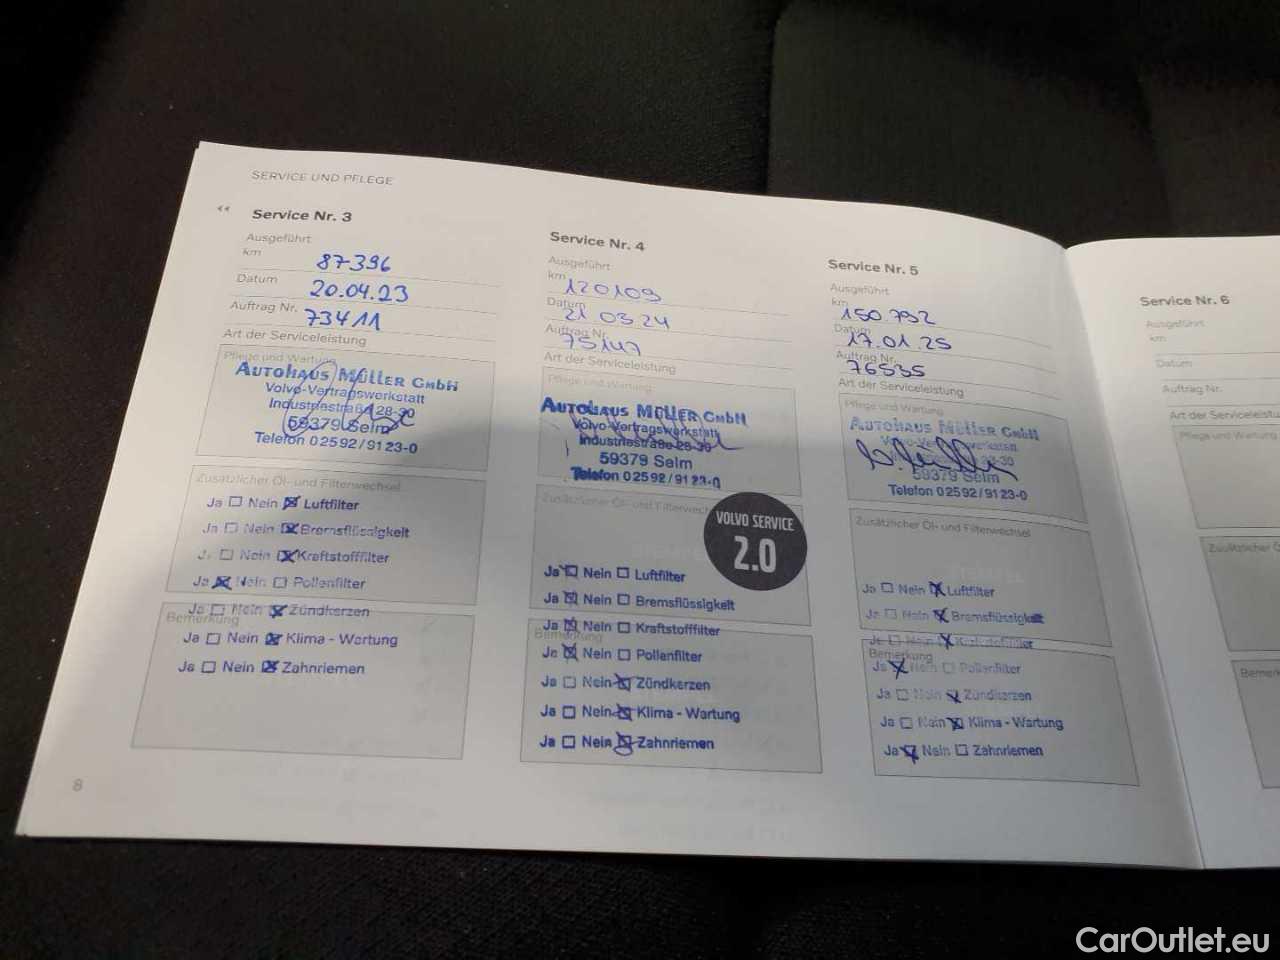 SERVICE UND PFLEGE
Service Nr. 3
Ausgeführt
km 87396
Datum 20.04.23
Auftrag Nr. 73411
Art der Serviceleistung
Pflege und Wartung
AUTOHAUS MÜLLER GMBH
Volvo-Vertragswerkstatt
Industriestraße 28-30
59379 Selm
Telefon 02592/9123-0
Zusätzlicher Öl- und Filterwechsel
Ja Nein Luftfilter
Ja Nein Bremsflüssigkeit
Ja Nein Kraftstofffilter
Ja Nein Pollenfilter
Ja Nein Zündkerzen
Bemerkung
Ja Nein Klima - Wartung
Ja Nein Zahnriemen
8
Service Nr. 4
Ausgeführt
km 120109
Datum 21 03 24
Auftrag Nr. 75147
Art der Serviceleistung
Pflege und Wartung
AUTOHAUS MÜLLER GMBH
Volvo-Vertragswerkstatt
Industriestraße 28-30
59379 Selm
Telefon 02592/9123-0
Zusätzlicher Öl- und Filterwech
VOLVO SERVICE
2.0
Ja Nein Luftfilter
Ja Nein Bremsflüssigkeit
Ja Nein Kraftstofffilter
Bemerkung
Ja Nein Pollenfilter
Ja Nein Zündkerzen
Ja Nein Klima - Wartung
Ja Nein Zahnriemen
Service Nr. 5
Ausgeführt
km 150.792
Datum 17.01.25
Auftrag Nr. 76535
Art der Serviceleistung
Pflege und Wartung
AUTOHAUS MÜLLER GMBH
Volvo-Vertragswerkstatt
Industriestraße 28-30
59379 Selm
Telefon 02592/9123-0
Zusätzlicher Öl- und Filterwechsel
Ja Nein Luftfilter
Ja Nein Bremsflüssigkeit
Ja Nein Kraftstofffilter
Bemerkung
Ja Nein Pollenfilter
Ja Nein Zündkerzen
Ja Nein Klima - Wartung
Ja Nein Zahnriemen
Service Nr. 6
Ausgeführt
km
Datum
Auftrag Nr.
Art der Serviceleistu
Pflege und Wartung
Zusätzlicher Öl
Bemerk
CarOutlet.eu